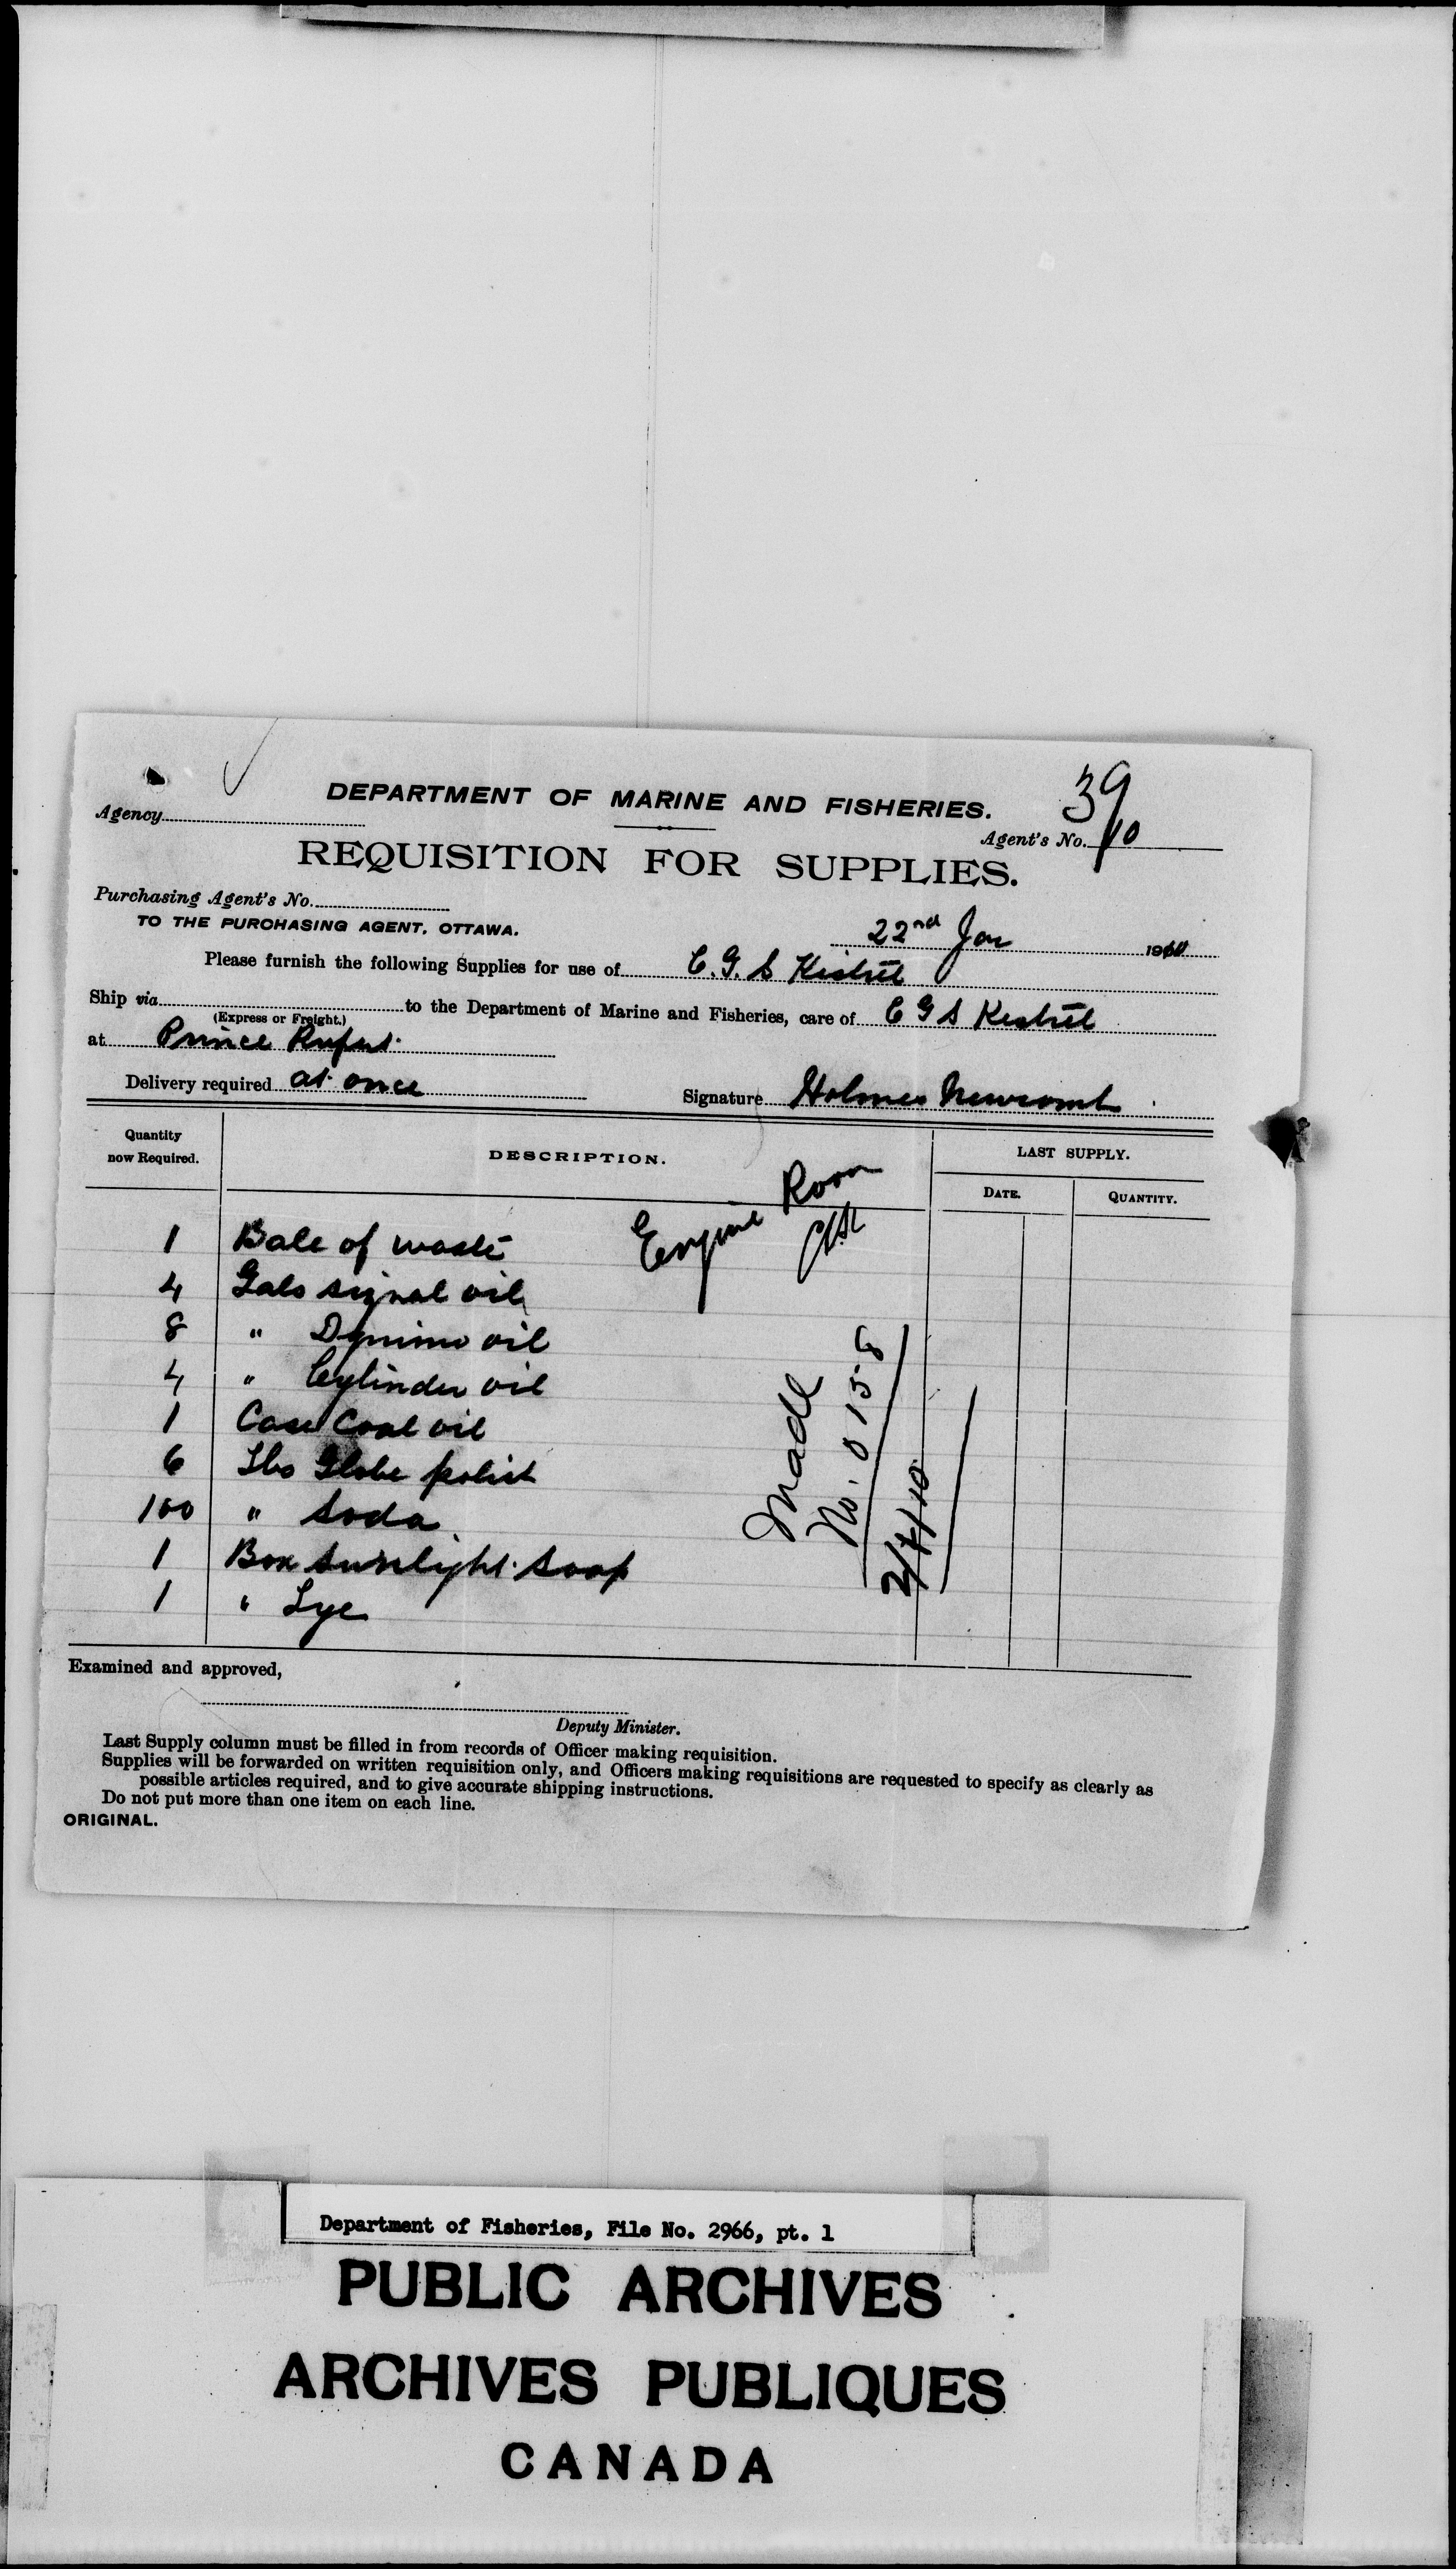 39
DEPARTMENT OF MARINE AND FISHERIES.
Agency
Agent's No. 10
REQUISITION FOR SUPPLIES.
Purchasing Agent's No.
TO THE PURCHASING AGENT, OTTAWA.
22nd Jan 1910
Please furnish the following Supplies for use of C. G. S Kestrel
Ship via to the Department of Marine and Fisheries, care of C G S Kestrel
(Express or Freight.)
at Prince Rupert
Delivery required at once Signature Holmes Newcomb
Quantity now Required. DESCRIPTION. LAST SUPPLY.
DATE. QUANTITY.
Engine Room
1 Bale of waste
4 Gals signal oil
8 " Dynimo oil
4 " Cylinder oil
1 Case Coal oil
6 Lbs Globe polish
100 " Soda
1 Box Sunlight Soap
1 " Lye
Made
No. 0158
2/4/10
Examined and approved,
Deputy Minister.
Last Supply column must be filled in from records of Officer making requisition.
Supplies will be forwarded on written requisition only, and Officers making requisitions are requested to specify as clearly as
possible articles required, and to give accurate shipping instructions.
Do not put more than one item on each line.
ORIGINAL.
Department of Fisheries, File No. 2966, pt. 1
PUBLIC ARCHIVES
ARCHIVES PUBLIQUES
CANADA